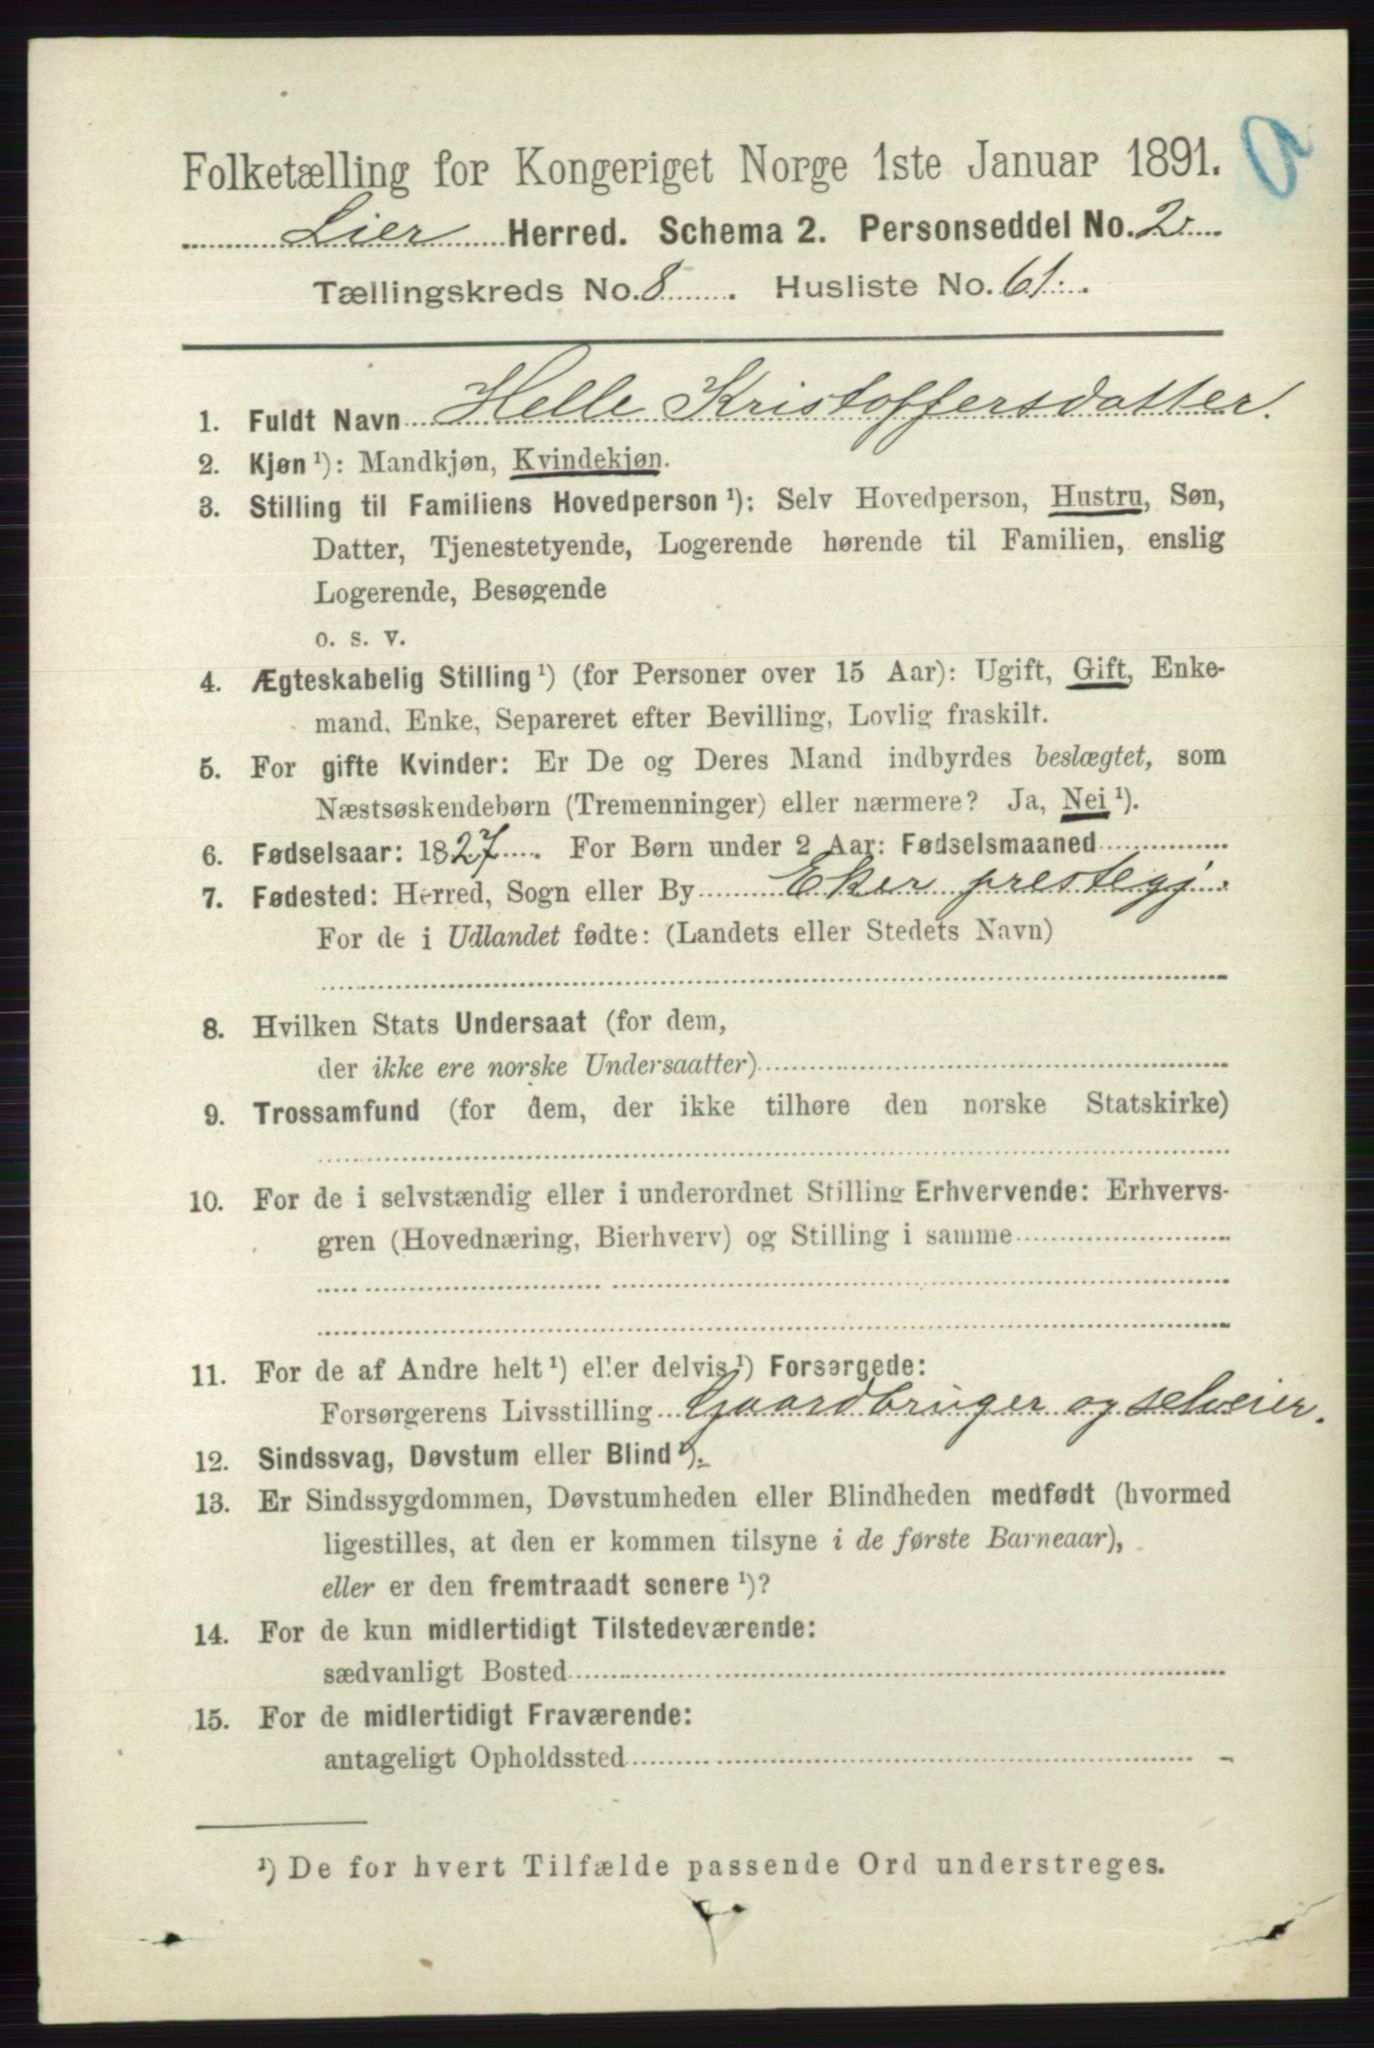 Folketælling for Kongeriget Norge 1ste Januar 1891.
Lier Herred. Schema 2. Personseddel No. 2
Tællingskreds No. 8. Husliste No. 61.
1. Fuldt Navn Helle Kristoffersdatter.
2. Kjøn ¹): Mandkjøn, Kvindekjøn.
3. Stilling til Familiens Hovedperson ¹): Selv Hovedperson, Hustru, Søn,
Datter, Tjenestetyende, Logerende hørende til Familien, enslig
Logerende, Besøgende
o. s. v.
4. Ægteskabelig Stilling ¹) (for Personer over 15 Aar): Ugift, Gift, Enke-
mand, Enke, Separeret efter Bevilling, Lovlig fraskilt.
5. For gifte Kvinder: Er De og Deres Mand indbyrdes beslægtet, som
Næstsøskendebørn (Tremenninger) eller nærmere? Ja, Nei ¹).
6. Fødselsaar: 1827. For Børn under 2 Aar: Fødselsmaaned
7. Fødested: Herred, Sogn eller By Eker prestegj.
For de i Udlandet fødte: (Landets eller Stedets Navn)
8. Hvilken Stats Undersaat (for dem,
der ikke ere norske Undersaatter)
9. Trossamfund (for dem, der ikke tilhøre den norske Statskirke)
10. For de i selvstændig eller i underordnet Stilling Erhvervende: Erhvervs-
gren (Hovednæring, Bierhverv) og Stilling i samme
11. For de af Andre helt ¹) eller delvis ¹) Forsørgede:
Forsørgerens Livsstilling Gaardbruger og selveier.
12. Sindssvag, Døvstum eller Blind ¹).
13. Er Sindssygdommen, Døvstumheden eller Blindheden medfødt (hvormed
ligestilles, at den er kommen tilsyne i de første Barneaar),
eller er den fremtraadt senere ¹)?
14. For de kun midlertidigt Tilstedeværende:
sædvanligt Bosted
15. For de midlertidigt Fraværende:
antageligt Opholdssted
¹) De for hvert Tilfælde passende Ord understreges.